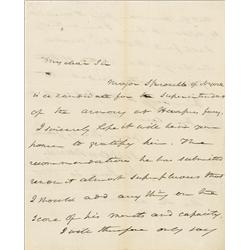 My dear Sir
Major Sproull of N York
is a candidate for the Superintendence
of the armory at Harpers ferry
I sincerely hope it will be in your
power to gratify him. The
recommendations he has submitted
render it almost superfluous that
I should add any thing on the
score of his merits and capacity
I will therefore only say